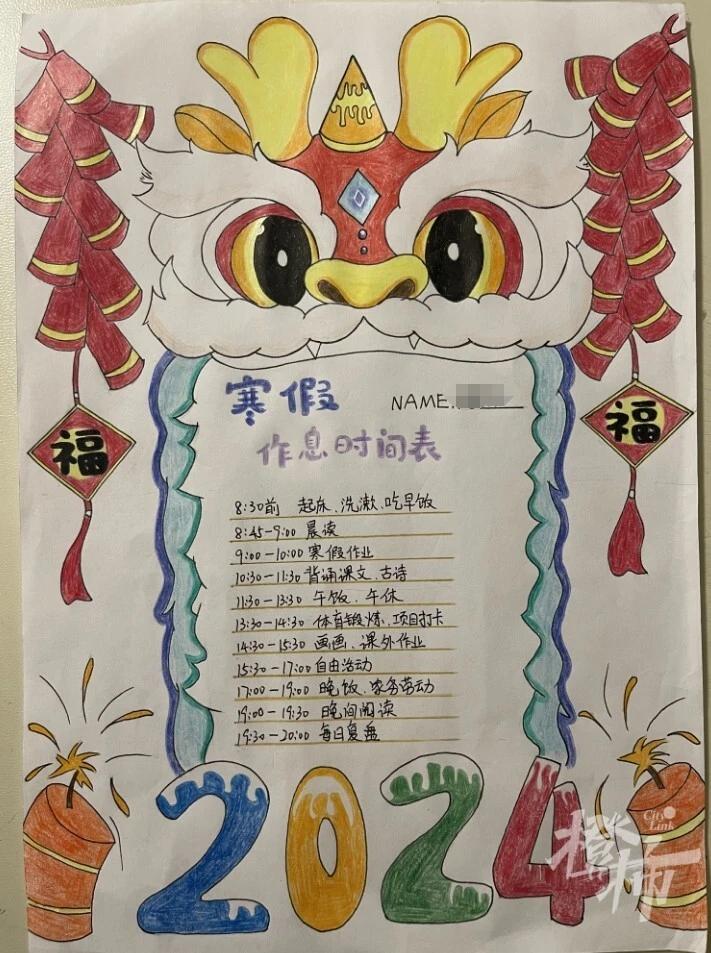 福
福
寒假
NAME:
作息时间表
8:30前 起床、洗漱、吃早饭
8:45-9:00 晨读
9:00-10:00 寒假作业
10:30-11:30 背诵课文、古诗
11:30-13:30 午饭、午休
13:30-14:30 体育锻炼、项目打卡
14:30-15:30 画画、课外作业
15:30-17:00 自由活动
17:00-19:00 晚饭、家务劳动
19:00-19:30 晚间阅读
19:30-20:00 每日复盘
2024
City Link
橙柿